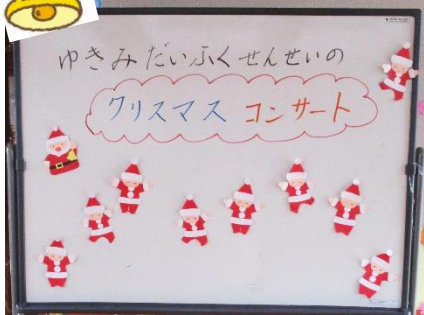 ゆきみだいふくせんせいの
クリスマス コンサート